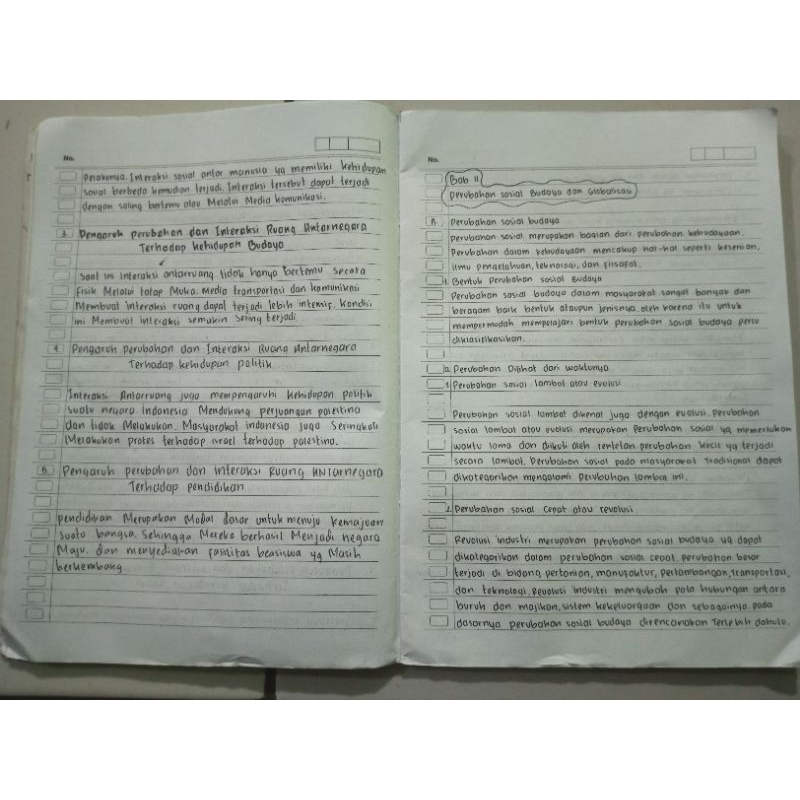 No.
perannya. Interaksi sosial antar manusia yg memiliki kehidupan
sosial berbeda kemudian terjadi. Interaksi tersebut dapat terjadi
dengan saling bertemu atau Melalui Media komunikasi.
3. Pengaruh perubahan dan Interaksi Ruang Antarnegara
Terhadap kehidupan Budaya
Saat ini interaksi antarruang tidak hanya bertemu secara
fisik Melalui tatap Muka. Media transportasi dan komunikasi
Membuat interaksi ruang dapat terjadi lebih intensif. Kondisi
ini Membuat interaksi semakin sering terjadi
4. Pengaruh perubahan dan Interaksi Ruang Antarnegara
Terhadap kehidupan politik
Interaksi Antarruang juga mempengaruhi kehidupan politik
suatu negara. Indonesia Mendukung perjuangan palestina
dan tidak Melakukan. Masyarakat indonesia juga Seringkali
Melakukan protes terhadap israel terhadap palestina.
5. Pengaruh perubahan dan interaksi Ruang ANTARnegara
Terhadap pendidikan
pendidikan Merupakan Modal dasar untuk menuju kemajuan
suatu bangsa. Sehingga Mereka berhasil Menjadi negara
Maju. dan menyediakan fasilitas beasiswa yg Masih
berkembang
No.
Bab II
perubahan sosial Budaya dan Globalisasi
A. Perubahan sosial budaya
perubahan sosial merupakan bagian dari perubahan kebudayaan.
Perubahan dalam kebudayaan mencakup hal-hal seperti kesenian,
ilmu pengetahuan, teknologi, dan filsafat.
1. Bentuk Perubahan sosial Budaya
Perubahan sosial budaya dalam masyarakat sangat banyak dan
beragam baik bentuk ataupun jenisnya. oleh karena itu untuk
mempermudah mempelajari bentuk perubahan sosial budaya perlu
diklasifikasikan.
a. Perubahan Dilihat dari waktunya
1. Perubahan sosial lambat atau evolusi
Perubahan sosial lambat dikenal juga dengan evolusi. Perubahan
sosial lambat atau evolusi merupakan Perubahan sosial yg memerlukan
waktu lama dan diikuti oleh rentetan perubahan kecil yg terjadi
secara lambat. Perubahan sosial pada masyarakat Tradisional dapat
dikategorikan mengalami Perubuhan lambat ini.
2. Perubahan sosial cepat atau revolusi
Revolusi industri merupakan perubahan sosial budaya yg dapat
dikategorikan dalam perubahan sosial cepat. perubahan besar
terjadi di bidang pertanian, manufaktur, Pertambangan, transportasi,
dan teknologi. Revolusi industri mengubah pola hubungan antara
buruh dan majikan, sistem kekeluargaan dan sebagainya pada
dasarnya perubahan sosial budaya direncanakan Terlebih dahulu.